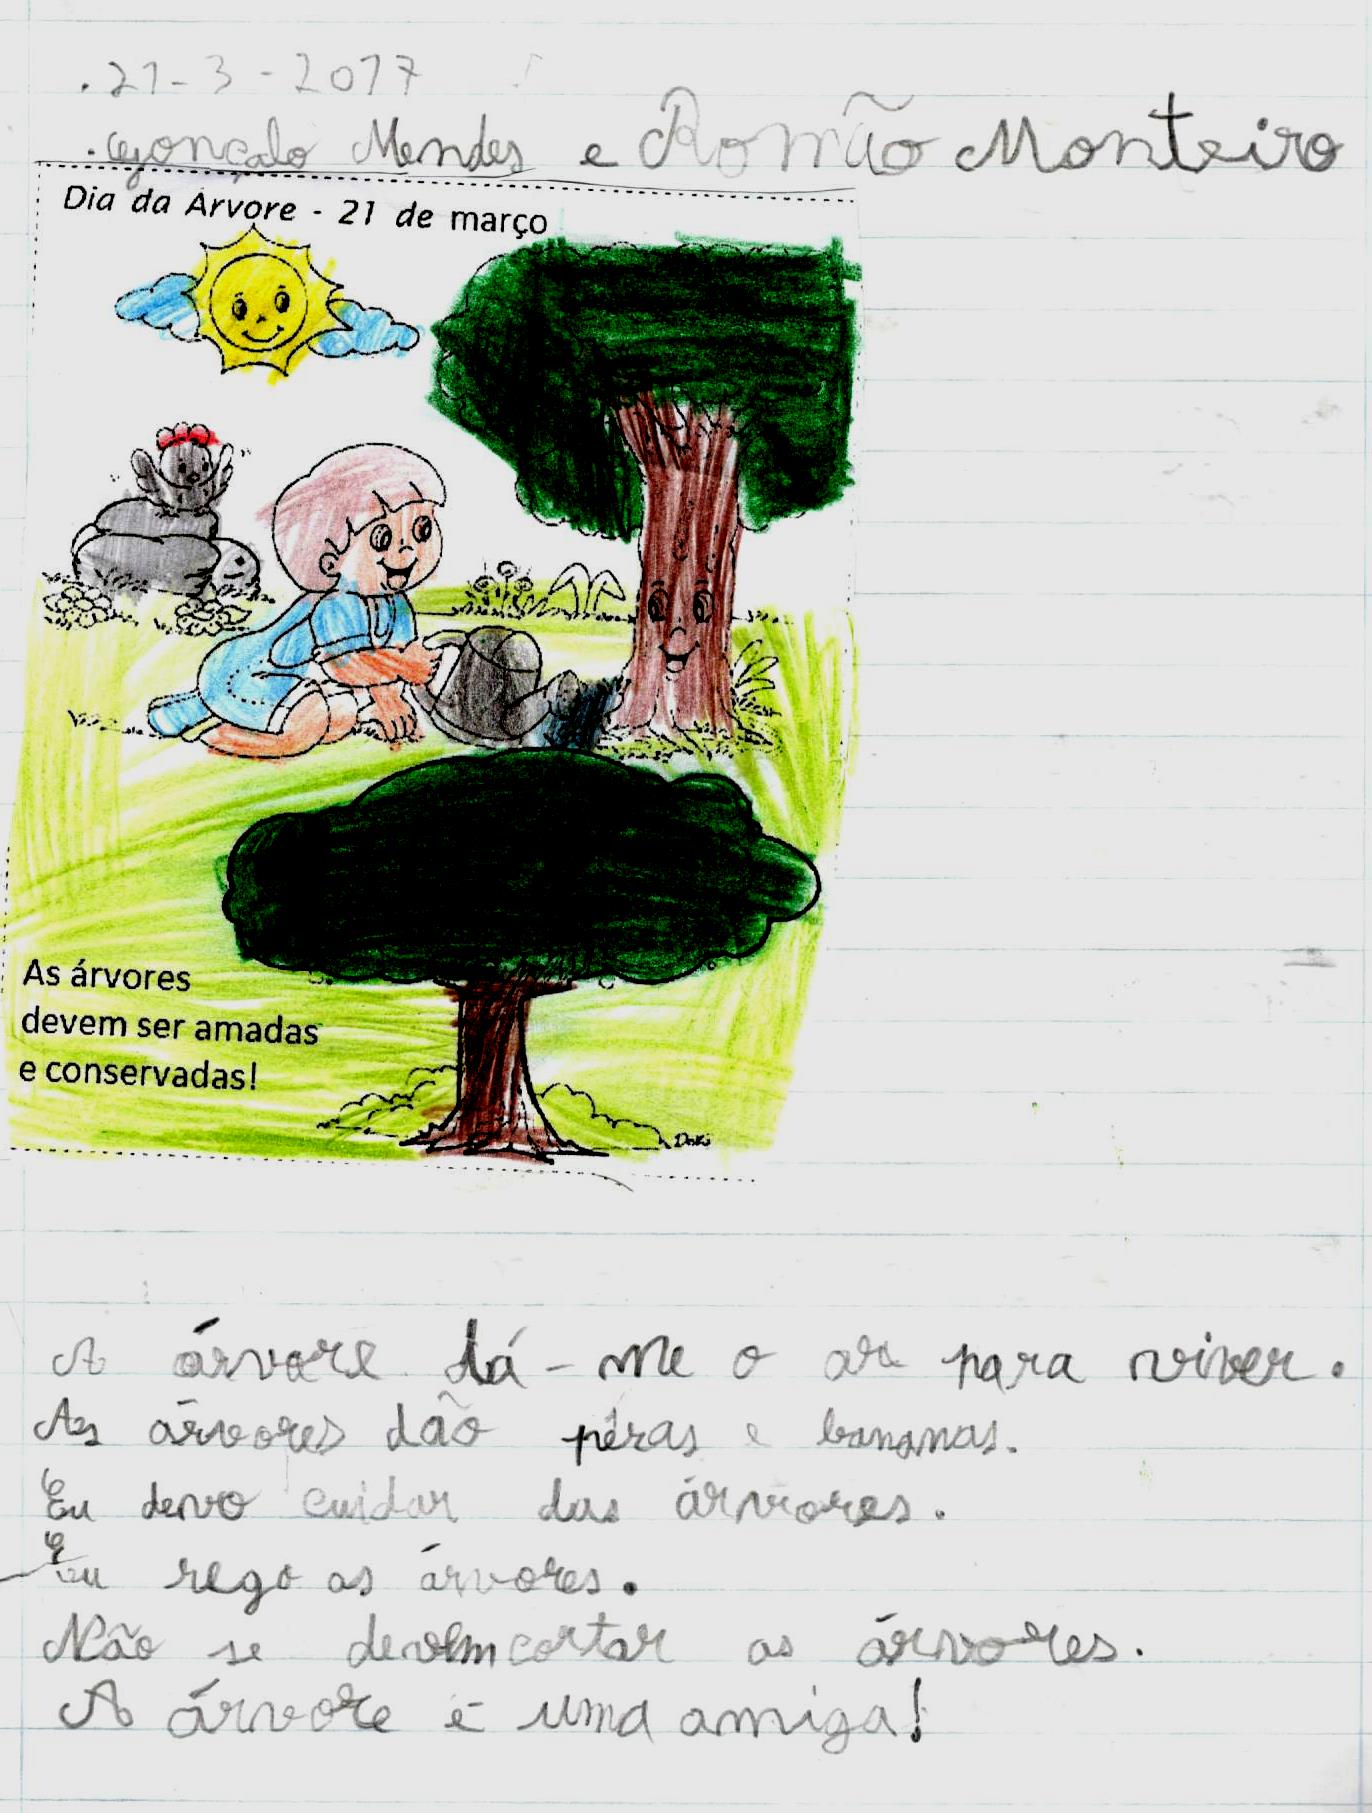 .21-3-2017
.Gonçalo Mendes e Romão Monteiro
Dia da Árvore - 21 de março
As árvores
devem ser amadas
e conservadas!
A árvore dá-me o ar para viver.
As árvores dão pêras e bananas.
Eu devo cuidar das árvores.
Eu rego as árvores.
Não se devem cortar as árvores.
A árvore é uma amiga!